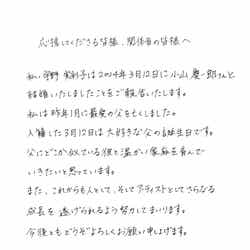 応援してくださる皆様、関係者の皆様へ
私、宇野実彩子は2024年3月12日に小山慶一郎さんと
結婚いたしましたことをご報告いたします。
私は昨年1月に最愛の父を亡くしました。
入籍した3月12日は大好きな父の誕生日です。
父にどこか似ている彼と温かい家庭を育んで
いきたいと思っています。
また、これからも人として、そしてアーティストとしてさらなる
成長を遂げられるよう努力してまいります。
今後ともどうぞよろしくお願い申し上げます。